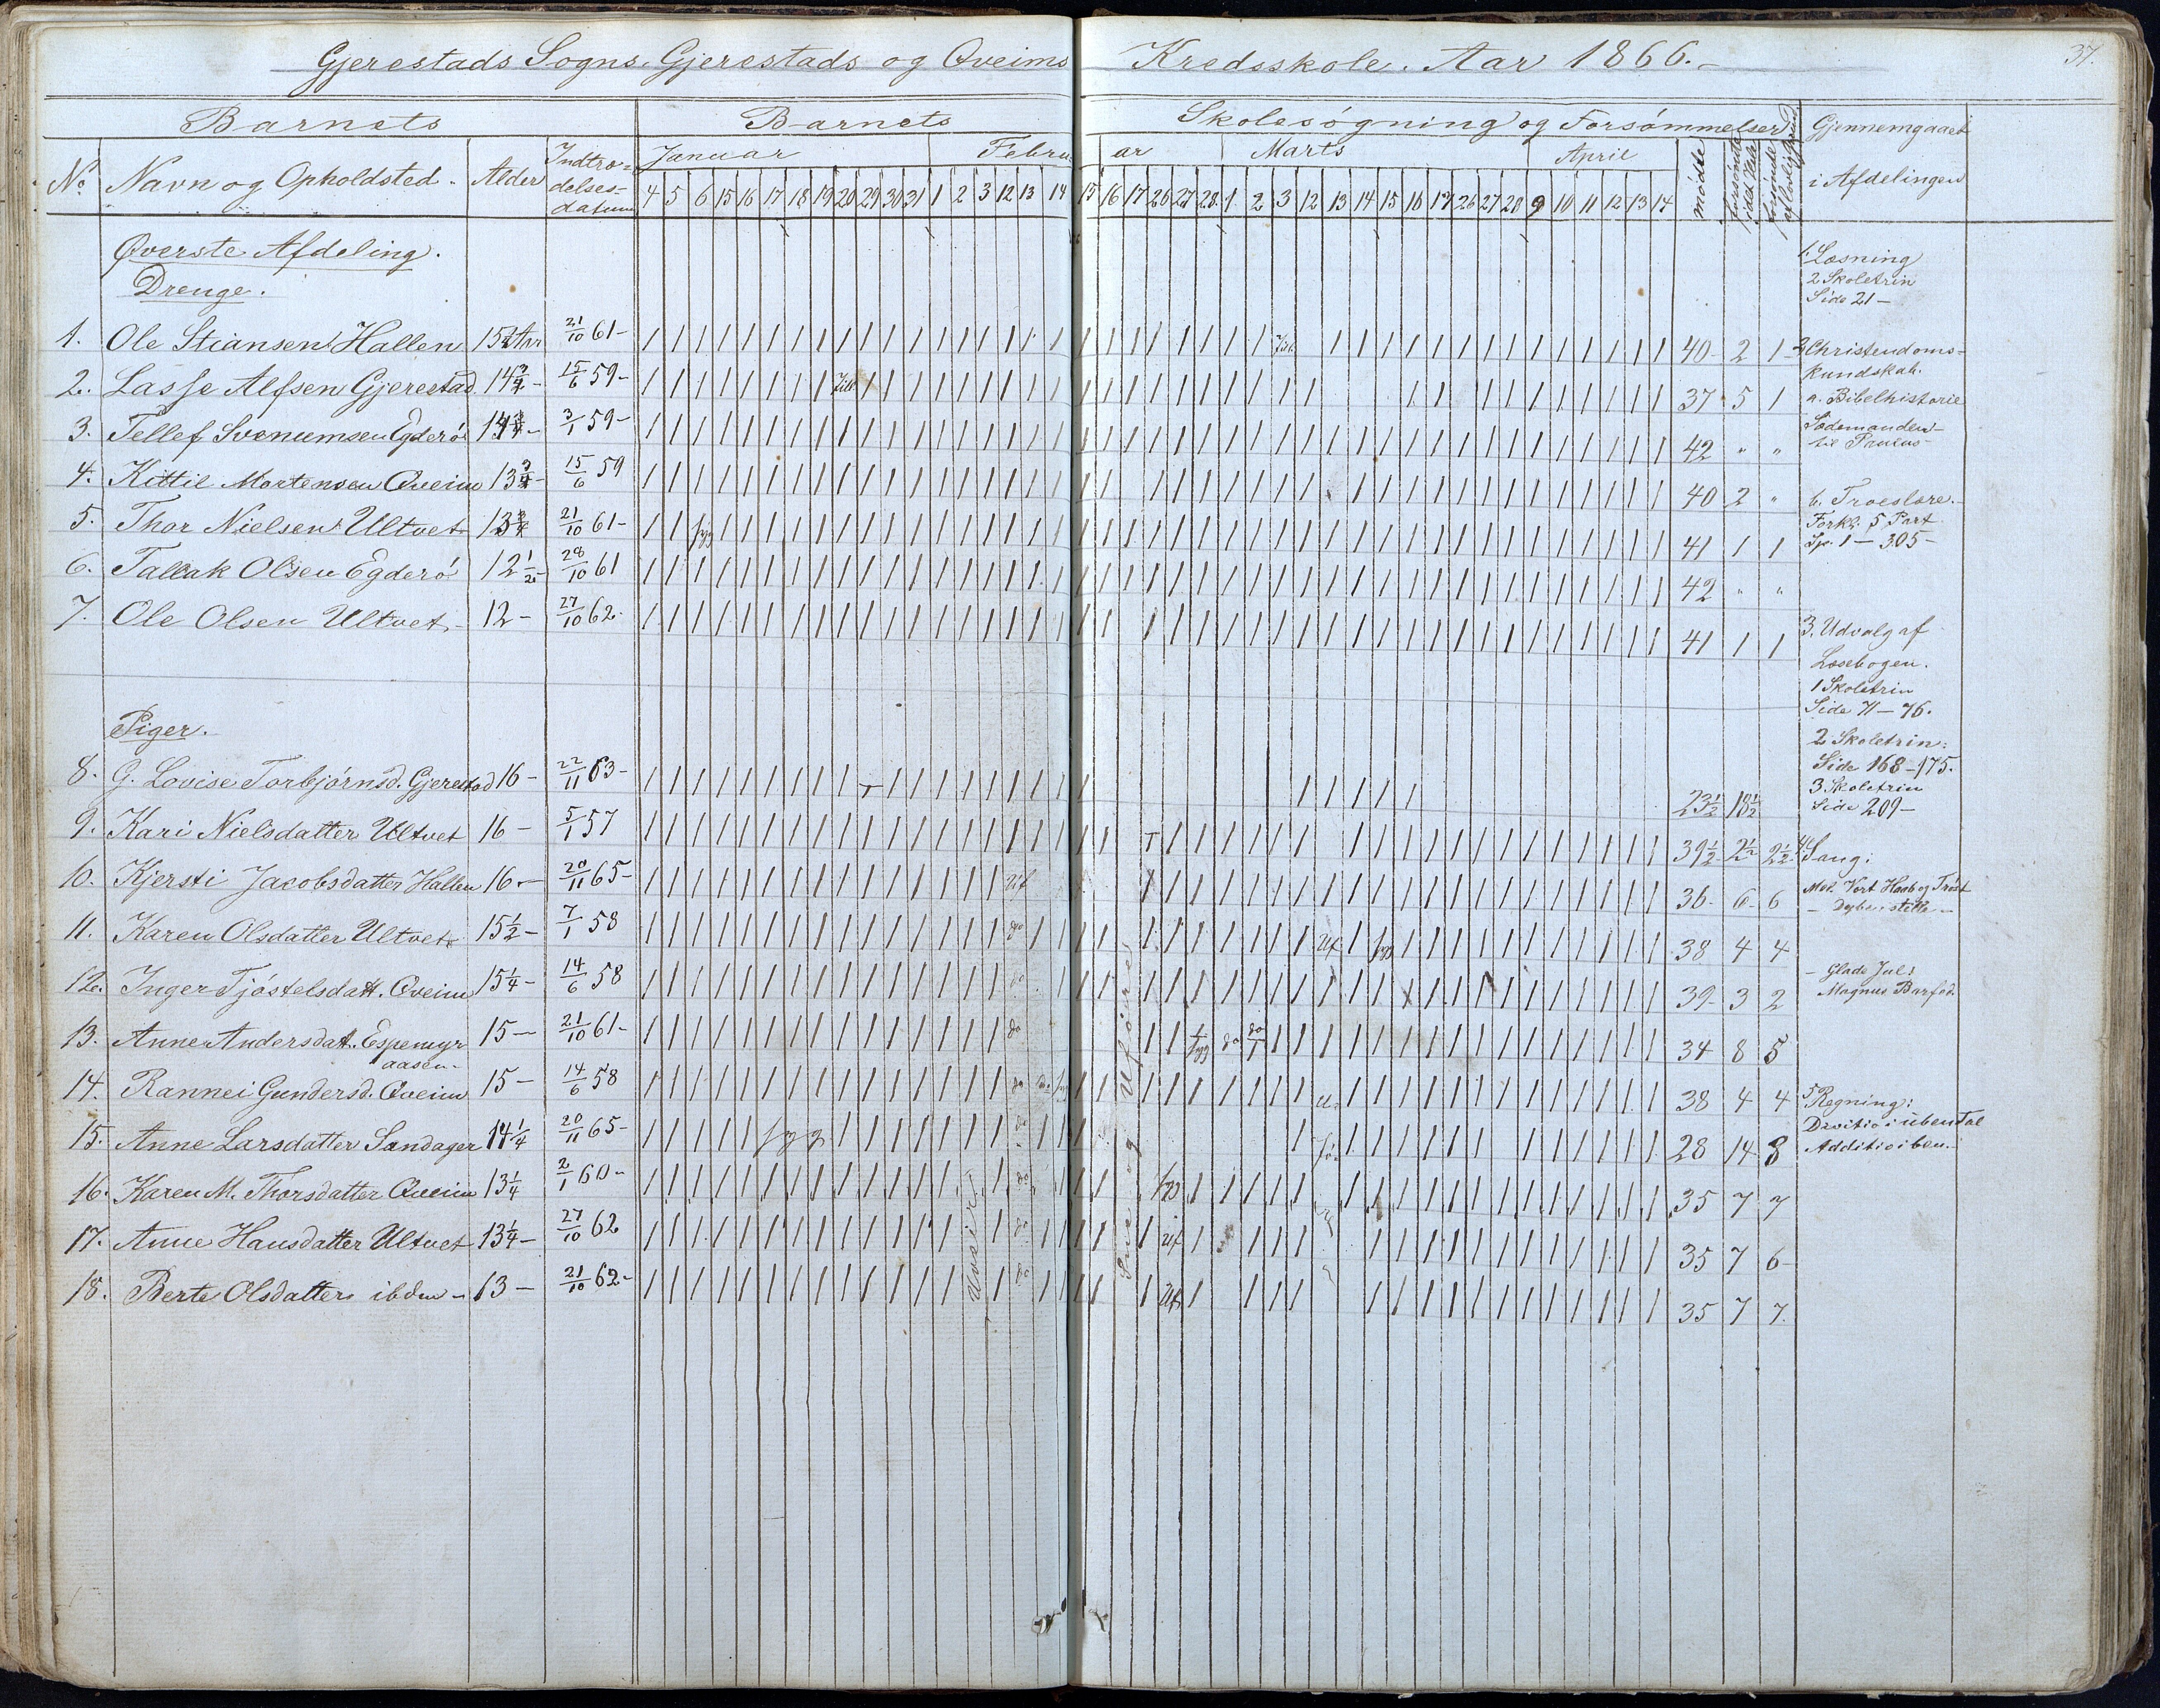 Gjerestads Sogns, Gjerestads og Qveims Kredsskole. Aar 1866.
37.
Barnets Barnets Skolesøgning og Forsømmelser Gjennemgaaet i Afdelingen
No. Navn og Opholdsted. Alder Indtrædelsesdatum Januar Februar Marts April mødte forsømte i det Hele forsømte
4 5 6 15 16 17 18 19 20 29 30 31 1 2 3 12 13 14 15 16 17 26 27 28 1 2 3 12 13 14 15 16 17 26 27 28 9 10 11 12 13 14
Øverste Afdeling.
Drenge.
1. Ole Stiansen Hallen 21/10 61- 40 2 1
2. Lasse Alfsen Gjerestad 14 3/4 - 15/6 59- 37 5 1
3. Tellef Svenumsen Egderø 3/1 59- 42 " "
4. Kittil Mortensen Qveim 13 3/4 - 15/6 59 40 2 "
5. Thor Nielsen Ultvet 13 3/4 21/10 61- 41 1 1
6. Tallak Olsen Egderø 12 1/2 - 28/10 61 42 " "
7. Ole Olsen Ultvet 12- 27/10 62- 41 1 1
Piger.
8. G. Lovise Torbjørnsd. Gjerestad 16- 22/11 63- 23 1/2 18 1/2
9. Kari Nielsdatter Ultvet 16- 5/1 57 39 1/2 2 1/2 2 1/2
10. Kjersti Jacobsdatter Hallen 16- 20/11 65- 36 6 6
11. Karen Olsdatter Ultvet 15 1/2 - 7/1 58 38 4 4
12. Inger Tjøstelsdatt. Qveim 15 1/4 - 14/6 58 39 3 2
13. Anne Andersdat. Espemyr 15- 21/10 61- 34 8 5
aasen-
14. Rannei Gundersd. Qveim 15- 14/6 58 38 4 4
15. Anne Larsdatter Sandager 14 1/4 20/11 65- 28 14 8
16. Karen M. Thorsdatter Qveim 13 1/4 2/1 60- 35 7 7
17. Anne Hansdatter Ultvet 13 1/4 - 27/10 62 35 7 6
18. Berte Olsdatter ibdm 13- 21/10 62- 35 7 7
Sne og Uføre
1. Læsning
2 Skoletrin
Side 21-
2 Christendoms-
kundskab.
a. Bibelhistorie
Sædemanden-
til Paulus
b. Troeslære.
Forkl. 5 Part
Sp. 1-305-
3. Udvalg af
Læsebogen.
1 Skoletrin
Side 71-76.
2 Skoletrin:
Side 168-175.
3 Skoletrin
Side 209-
4 Sang:
Mel. Vort Haab og Trøst
- Dybe, stille -
- Glade Jul:
Magnus Barfod.
5 Regning:
Divitio i ubental
Additio i ben.